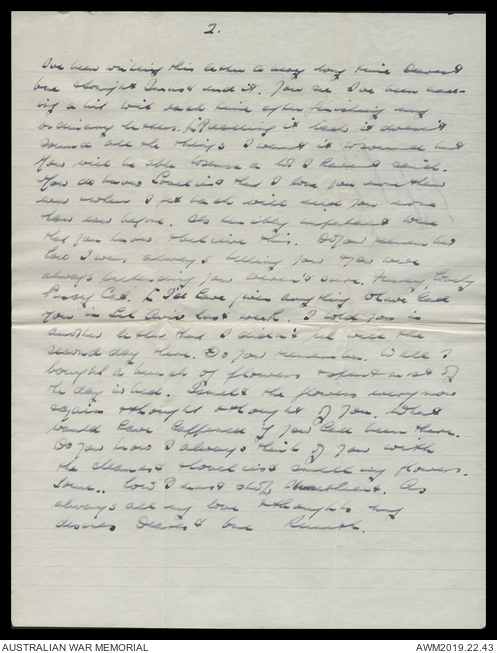 2.
I've been writing this letter a very long time Dearest
one thought I must end it. You see I've been add-
ing a bit with each time after finishing my
ordinary letters. Reading it back it doesn't
sound all the things I want it to sound but
You will be able to sense a lot I haven't said.
You do know that I love you more than
ever when I get back will need you more
than ever before. It's terribly important
that you know & believe this. Do you remember
how I was always telling you You were
always pretending you weren't sure. Funny, lovely
Pussy Cat. I'd have given anything to have had
You in last week. I told you in
another letter that I didn't feel well the
second day there. Do you remember. Well I
bought a bunch of flowers & spent most of
the day in bed. I smelt the flowers every now
& again & thought & thought of you. What
would have happened if you had been there.
Do you know I always think of you with
the cleanest smelling flowers.
Some.. how I must stop Sweetheart. As
always all my love & thoughts my
desires Dearest one
AUSTRALIAN WAR MEMORIAL
AWM2019.22.43